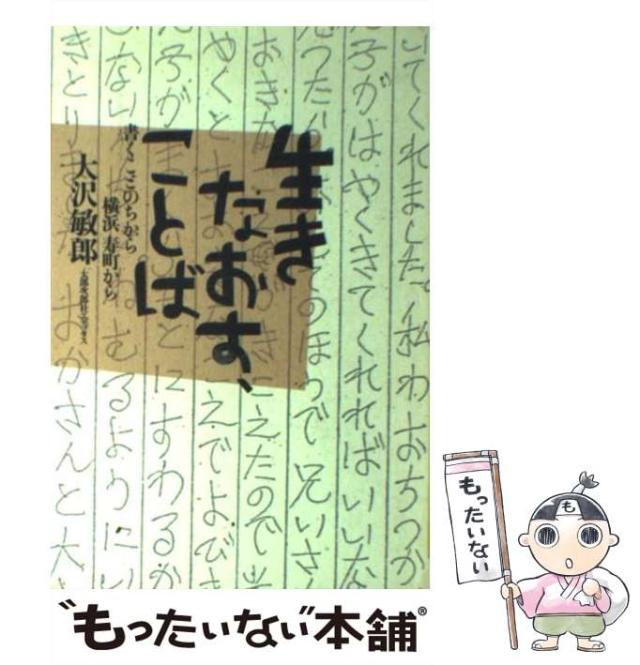 いてくれました。私わおちつか
子がはやくきてくれればいいな
つた
てのほうで兄いさ
おきな
こえたので
やくと
えでよびき
子がま
とにすわるか
しない
むるようにい
きとりま
おかさんと大
生き
なおす、
ことば
書くことのちから
横浜 寿町から
大沢敏郎
太郎次郎社エディタス
も
もったいない
"もったいない"本舗®